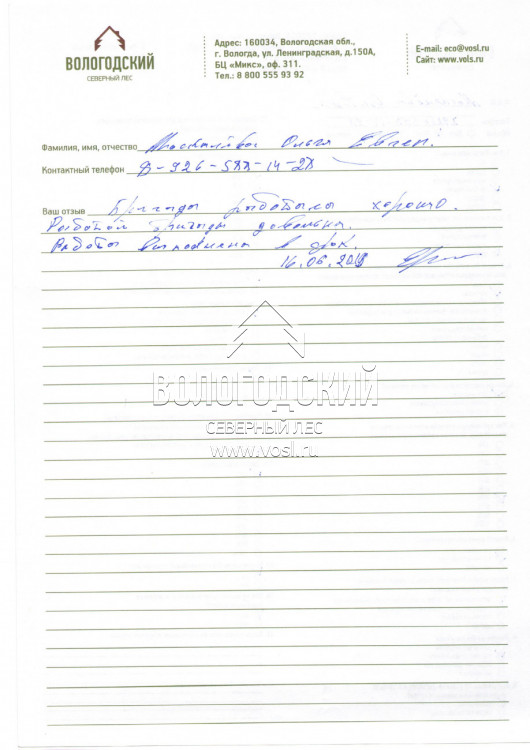 ВОЛОГОДСКИЙ
СЕВЕРНЫЙ ЛЕС
Адрес: 160034, Вологодская обл.,
г. Вологда, ул. Ленинградская, д.150А,
БЦ «Микс», оф. 311.
Тел.: 8 800 555 93 92
E-mail: eco@vosl.ru
Сайт: www.vols.ru
Фамилия, имя, отчество Ольга Евген.
Контактный телефон 8-926-
Ваш отзыв Бригады работала хорошо.
Работой бригады довольна.
Работы выполнены в срок.
16.06.2018
ВОЛОГОДСКИЙ
СЕВЕРНЫЙ ЛЕС
www.vosl.ru